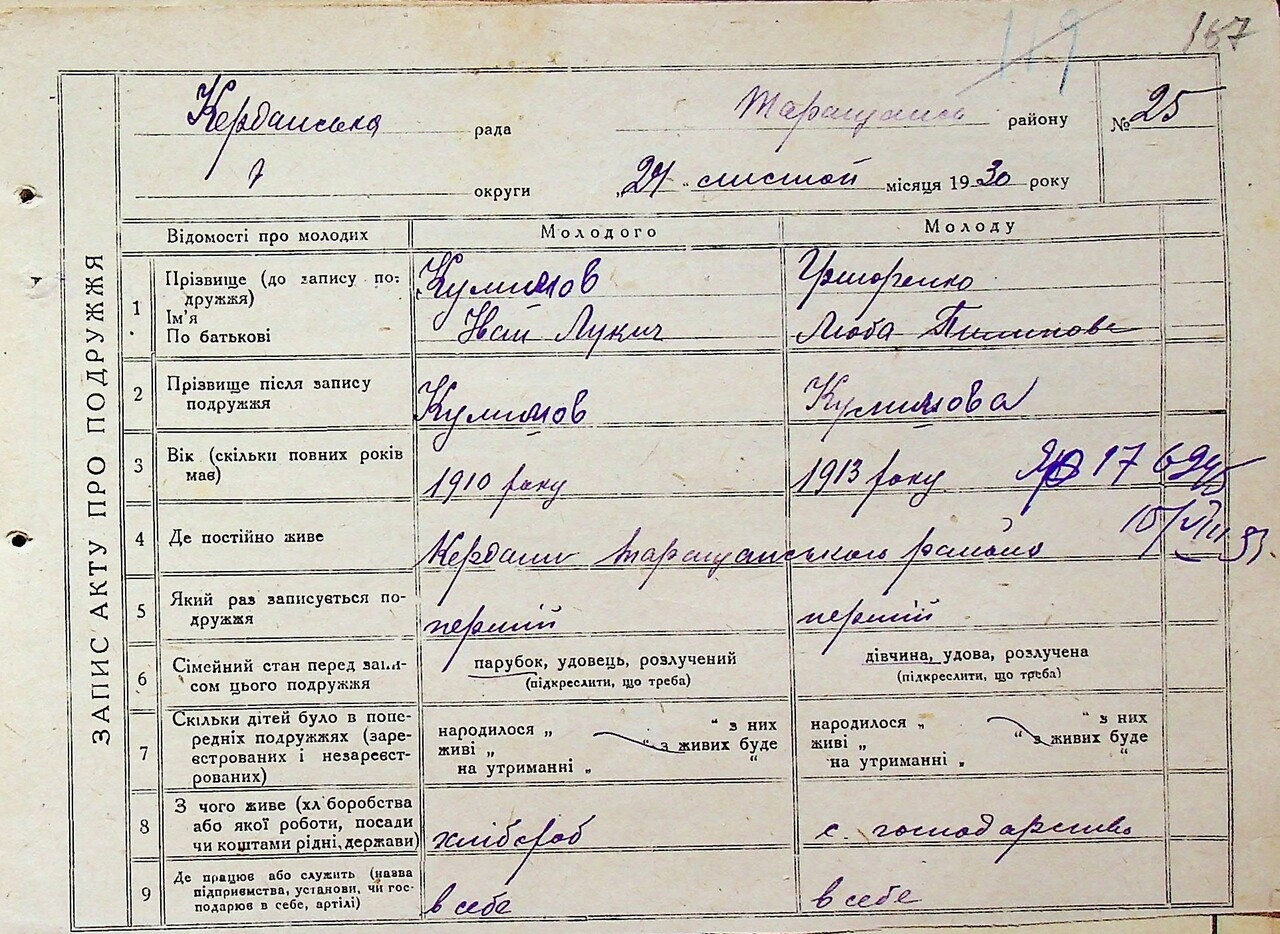 119
167
Керданська рада Таращансь району № 25
округи „24 “ листопад місяця 1930 року
ЗАПИС АКТУ ПРО ПОДРУЖЖЯ
Відомості про молодих Молодого Молоду
1 Прізвище (до запису по-
дружжя)
Ім'я
По батькові
Іван Лукич
Люба
2 Прізвище після запису
подружжя
3 Вік (скільки повних років
має)
1910 року
1913 року 17
4 Де постійно живе
Кердани Таращанського району
5 Який раз записується по-
дружжя
перший
перший
6 Сімейний стан перед запи-
сом цього подружжя
парубок, удовець, розлучений
(підкреслити, що треба)
дівчина, удова, розлучена
(підкреслити, що треба)
7 Скільки дітей було в попе-
редніх подружжях (заре-
єстрованих і незареєст-
рованих)
народилося „ “ з них
живі „ “ з живих буде
на утриманні „ “
народилося „ “ з них
живі „ “ з живих буде
на утриманні „ “
8 З чого живе (хліборобства
або якої роботи, посади
чи коштами рідні, держави)
хлібороб
с. господарство
9 Де працює або служить (назва
підприємства, установи, чи гос-
подарює в себе, артілі)
в себе
в себе